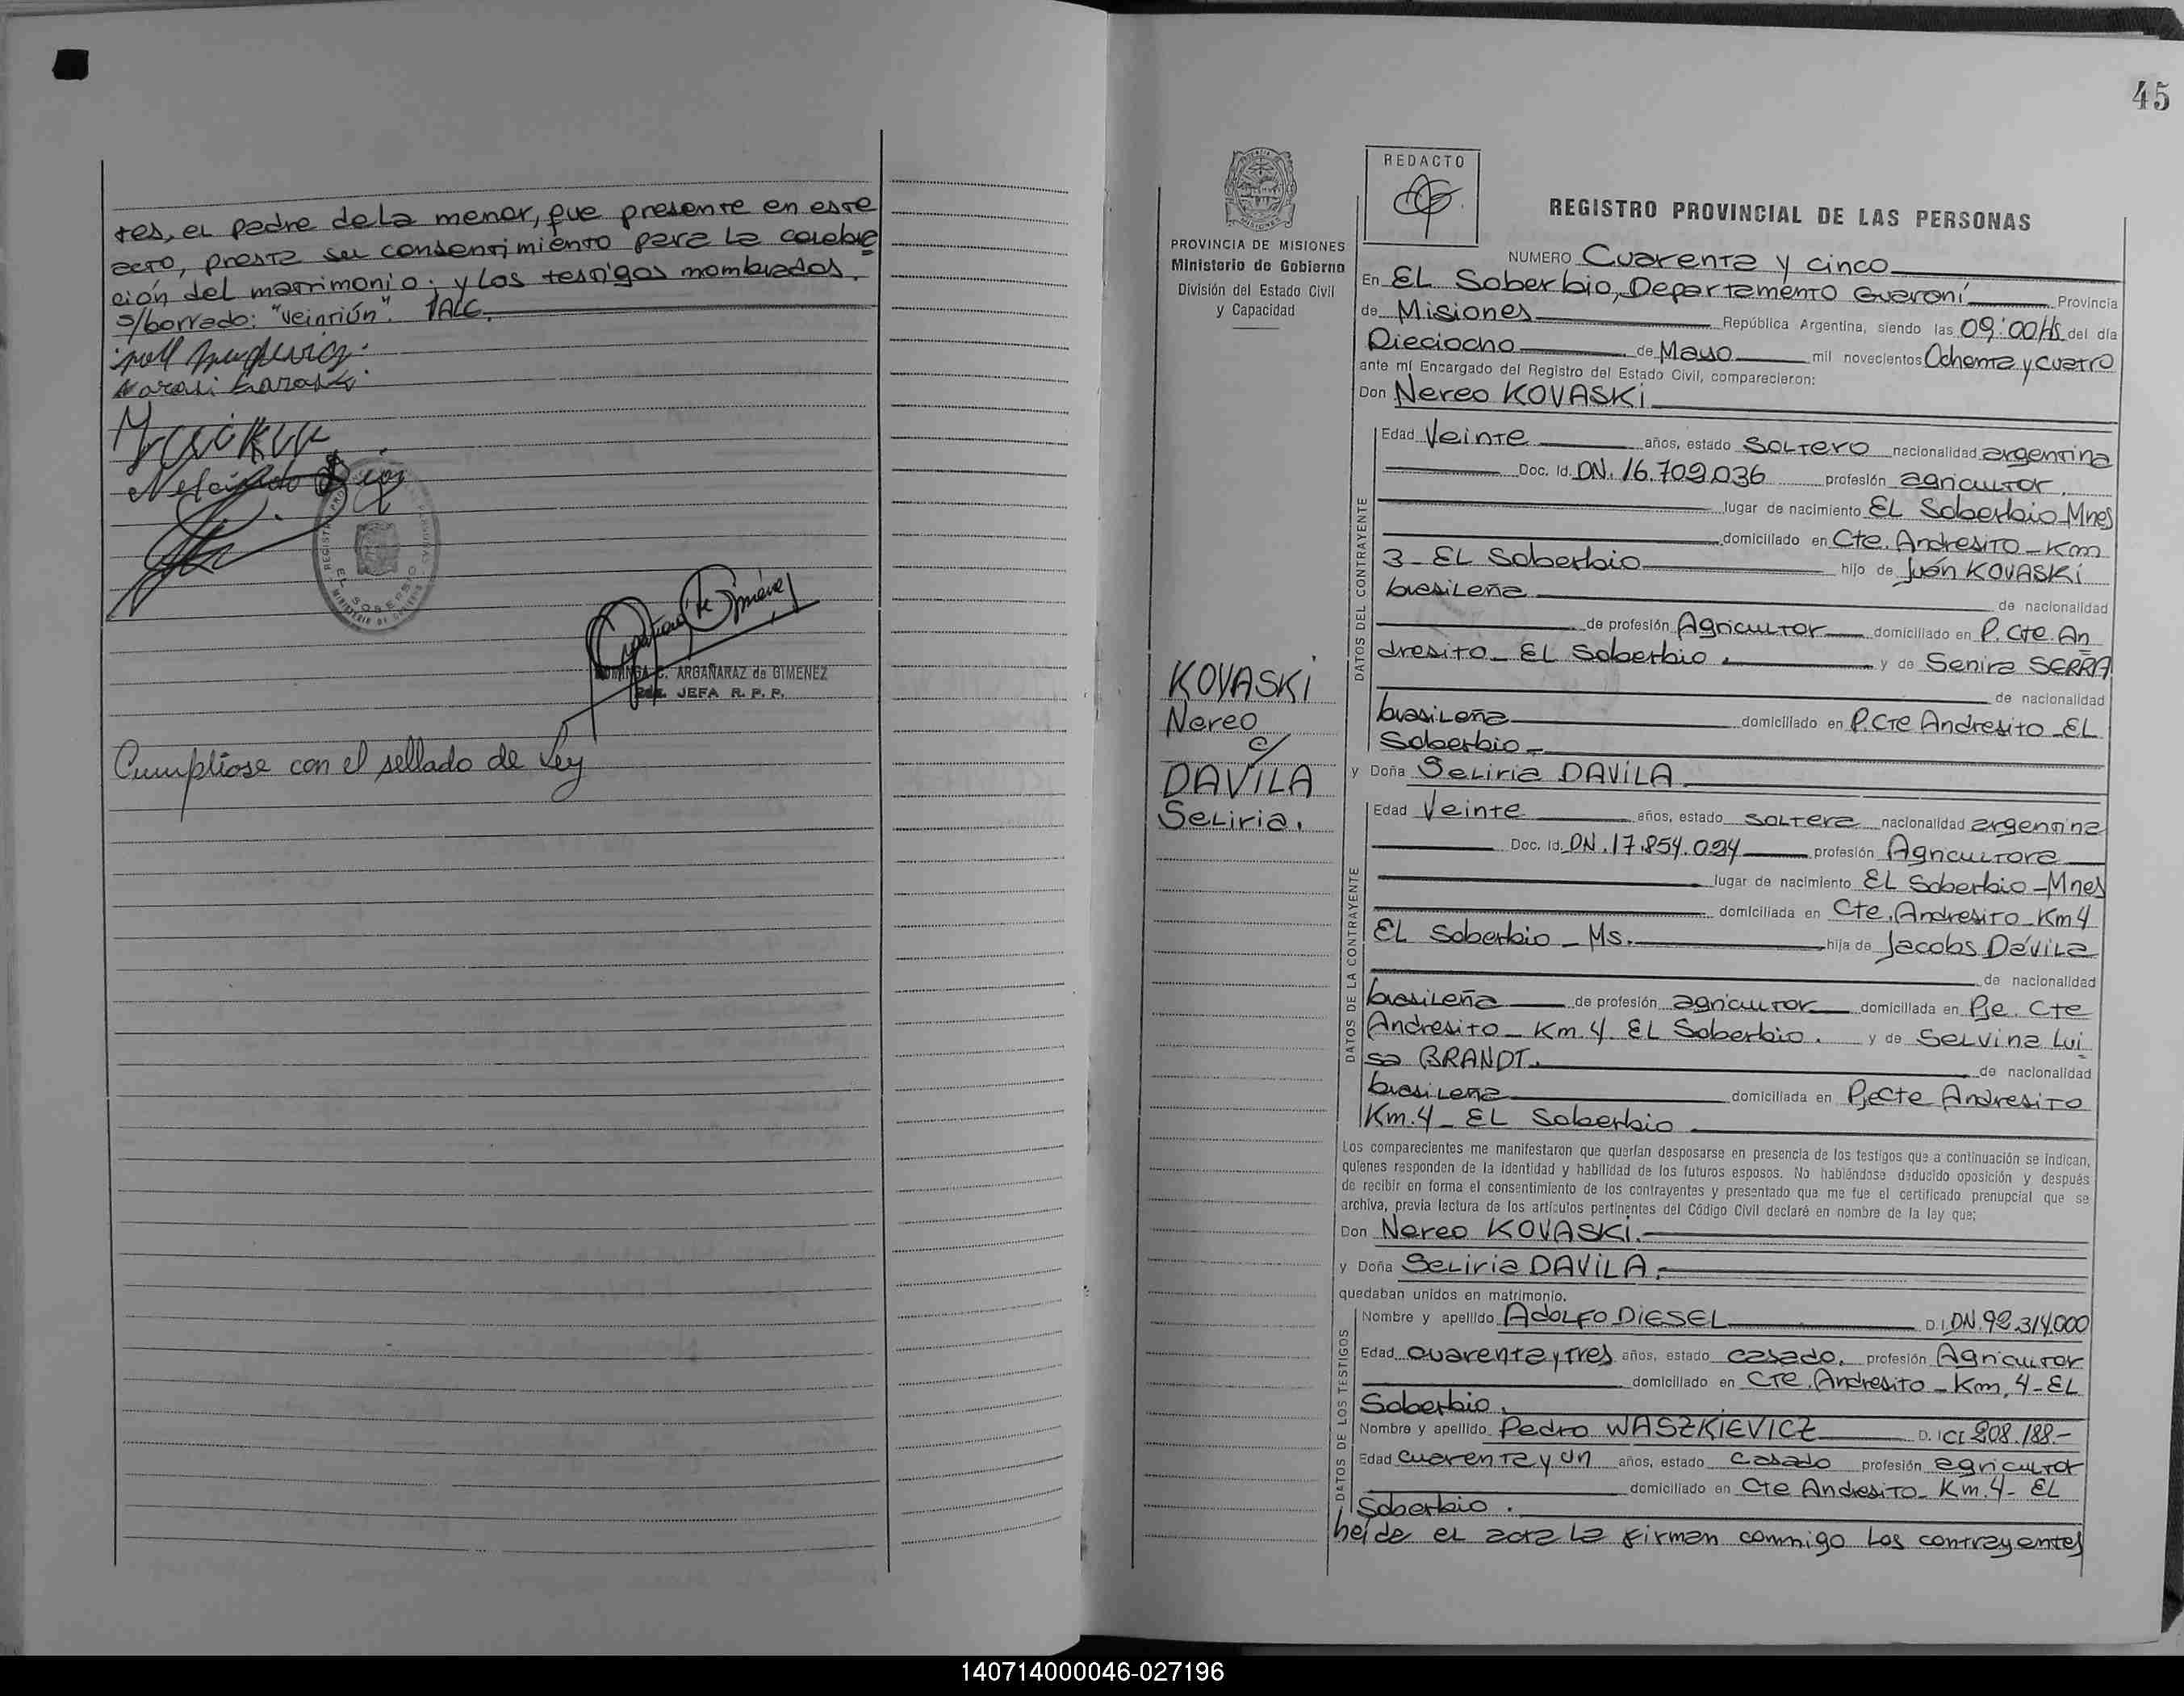 tes, el padre de la menor, que presente en este
acto, presta su consentimiento para la celebra
ción del matrimonio; y los testigos nombrados.
s/borrado: "veintiún". VALE.
Cumpliose con el sellado de Ley
ARGAÑARAZ de GIMENEZ
JEFA R. P. P.
EL SOBERBIO
45
REDACTO
PROVINCIA DE MISIONES
Ministerio de Gobierno
División del Estado Civil
y Capacidad
REGISTRO PROVINCIAL DE LAS PERSONAS
NUMERO Cuarenta y cinco
En EL Soberbio, Departamento Guaraní Provincia
de Misiones República Argentina, siendo las 09:00Hs del día
Dieciocho de Mayo mil novecientos Ochenta y cuatro
ante mí Encargado del Registro del Estado Civil, comparecieron:
Don Nereo KOVASKi
KOVASKi
Nereo
c/
DAVILA
Seliria.
DATOS DEL CONTRAYENTE
Edad Veinte años, estado soltero nacionalidad argentina
Doc. Id. DN. 16.709.036 profesión agricultor.
lugar de nacimiento EL Soberbio Mnes
domiciliado en Cte. Andresito - Km
3 - EL Soberbio hijo de Juan KOVASKi
brasileña de nacionalidad
de profesión Agricultor domiciliado en P. Cte. An
dresito - EL Soberbio. y de Senira SERRA
de nacionalidad
brasileña domiciliado en P. Cte Andresito - EL
Soberbio -
y Doña Seliria DAViLA
DATOS DE LA CONTRAYENTE
Edad Veinte años, estado soltera nacionalidad argentina
Doc. Id. DN. 17.854.094 profesión Agricultora
lugar de nacimiento EL Soberbio - Mnes
domiciliada en Cte. Andresito - Km 4
EL Soberbio - Ms. hija de Jacobs Dávila
de nacionalidad
brasileña de profesión agricultor domiciliada en Pje. Cte
Andresito - Km. 4. EL Soberbio. y de Selvina Lui
sa BRANDT. de nacionalidad
brasileña domiciliada en Pje Cte Andresito
Km. 4 - EL Soberbio
Los comparecientes me manifestaron que querían desposarse en presencia de los testigos que a continuación se indican,
quienes responden de la identidad y habilidad de los futuros esposos. No habiéndose deducido oposición y después
de recibir en forma el consentimiento de los contrayentes y presentado que me fue el certificado prenupcial que se
archiva, previa lectura de los artículos pertinentes del Código Civil declaré en nombre de la ley que;
Don Nereo KOVASKi.
y Doña Seliria DAViLA.
quedaban unidos en matrimonio.
DATOS DE LOS TESTIGOS
Nombre y apellido Adolfo DiESEL D.I. DN. 92.314.000
Edad cuarenta y tres años, estado casado. profesión Agricultor
domiciliado en Cte. Andresito - Km. 4 - EL
Soberbio.
Nombre y apellido Pedro WASZKiEVICZ D. I CI 208.188.-
Edad cuarenta y un años, estado casado profesión agricultor
domiciliado en Cte Andresito - Km. 4 - EL
Soberbio.
heída el acta la firman conmigo los contrayentes
140714000046-027196